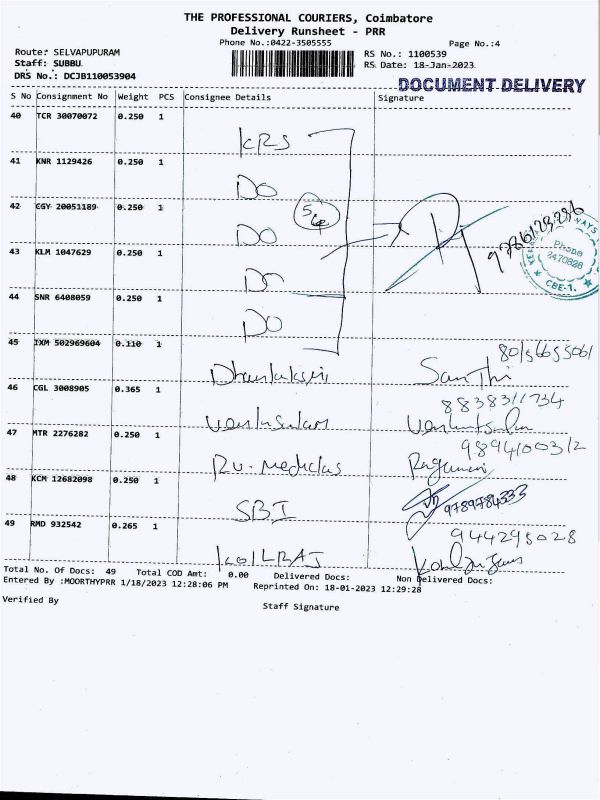 THE PROFESSIONAL COURIERS, Coimbatore
Delivery Runsheet - PRR
Phone No.:0422-3505555
Page No.:4
Route: SELVAPUPURAM
RS No.: 1100539
Staff: SUBBU
RS Date: 18-Jan-2023
DRS No.: DCJB110053904
DOCUMENT DELIVERY
S No Consignment No Weight PCS Consignee Details Signature
40 TCR 30070072 0.250 1
KRS
41 KNR 1129426 0.250 1
DO
42 CGY 20051189 0.250 1
DO
9786123286
Phone
2470828
CBE-1.
43 KLM 1047629 0.250 1
DO
44 SNR 6408059 0.250 1
DO
45 IXM 502969604 0.110 1
Santhi
46 CGL 3008905 0.365 1
8838311734
47 MTR 2276282 0.250 1
9894100312
Rv. Medicals
48 KCM 12682098 0.250 1
SBI
9789784333
49 RMD 932542 0.265 1
944295028
KOILRAJ
Total No. Of Docs: 49 Total COD Amt: 0.00 Delivered Docs: Non Delivered Docs:
Entered By :MOORTHYPRR 1/18/2023 12:28:06 PM Reprinted On: 18-01-2023 12:29:28
Verified By
Staff Signature